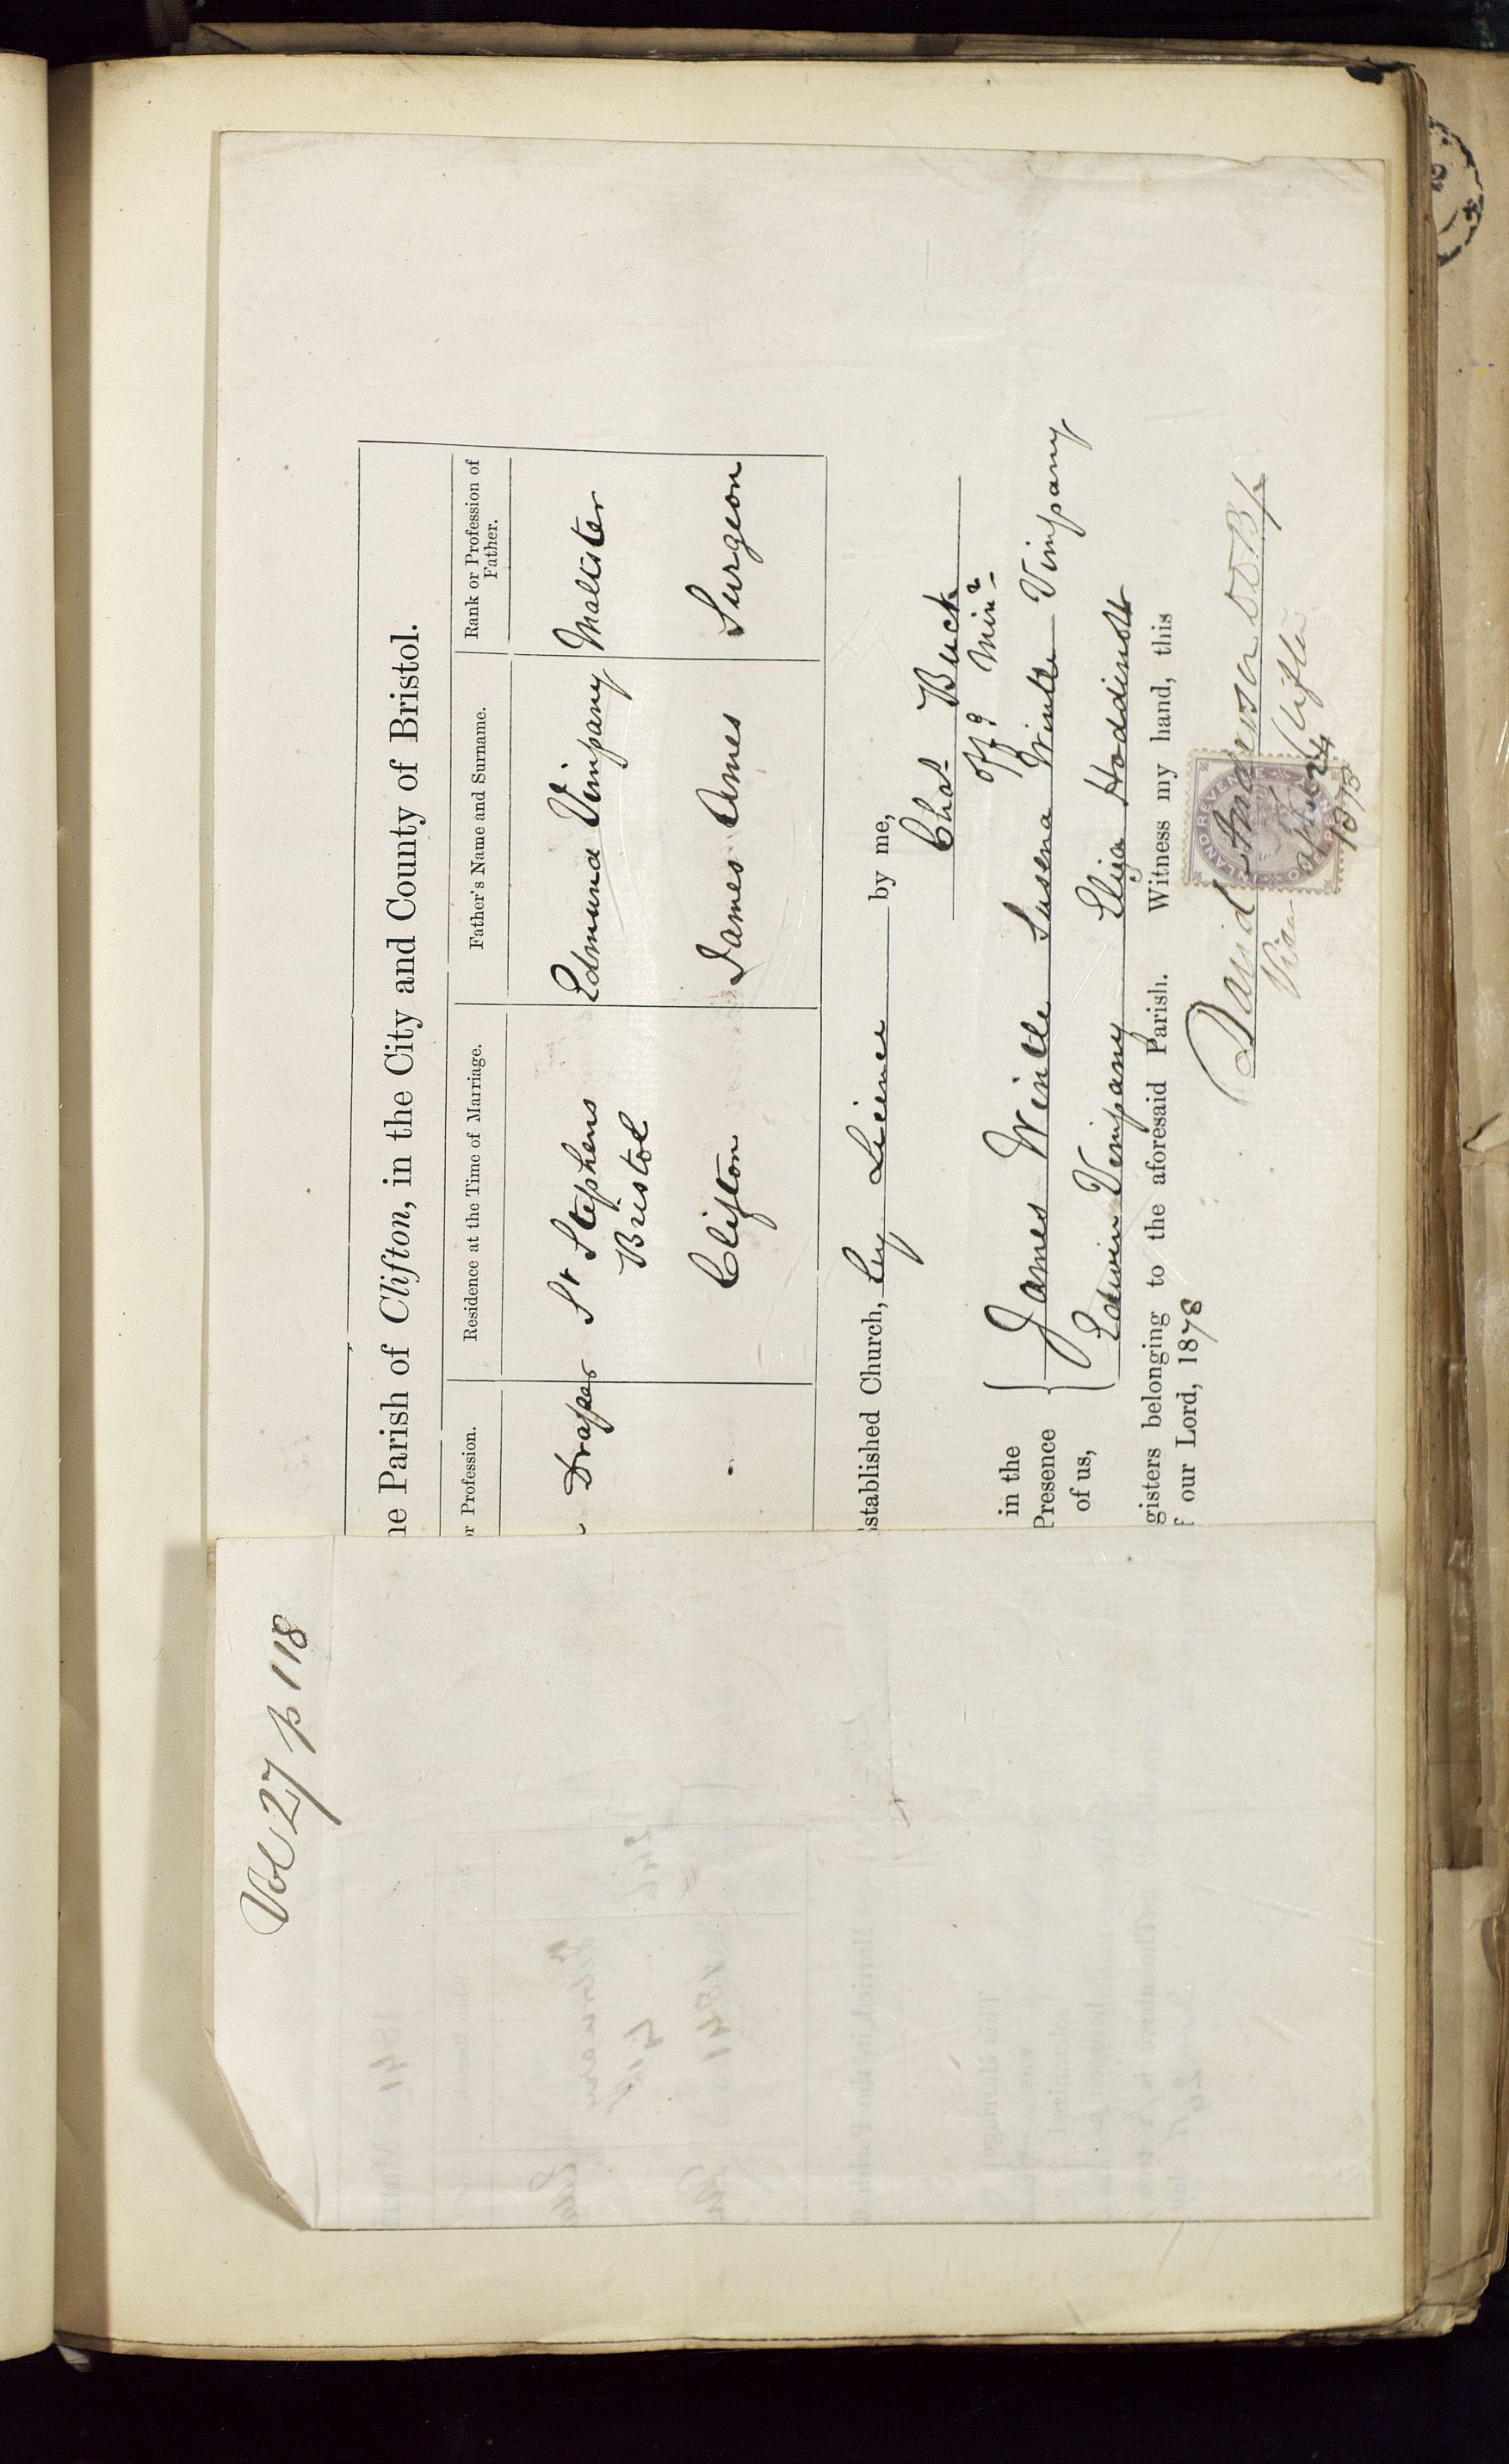 Vol 27 p 118
he Parish of Clifton, in the City and County of Bristol.
or Profession.
Residence at the Time of Marriage.
Father's Name and Surname.
Rank or Profession of
Father.
Draper
St Stephens
Bristol
Edmund Vimpany
Maltster
Clifton
James Ames
Surgeon
Established Church, by Licence by me,
Chas Buck
Offg Minr
in the
Presence
of us,
James Wintle Susena Wintle Vimpany
Edwin Vimpany Eliza Hoddinott
gisters belonging to the aforesaid Parish. Witness my hand, this
f our Lord, 1878
David Anderson
Vicar of Clifton
INLAND REVENUE
ONE PENNY
24
1878